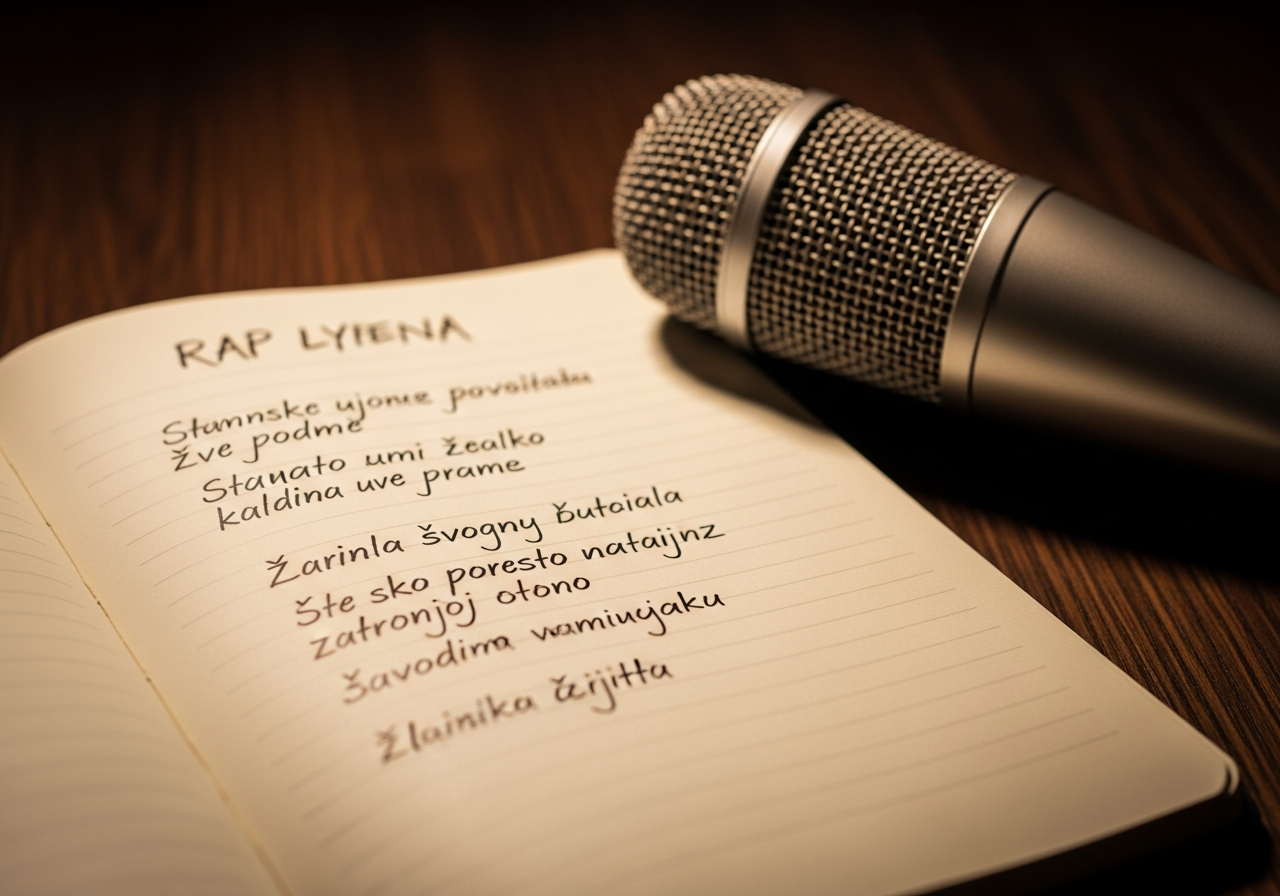 RAP LYIENA
Stamnske ujome
žve podme
Stanato umi žealko
kaldina uve prame
Žarinla švogny
Šte sko poresto nataijnz
zatronjoj otono
Šavodima
Žlainika